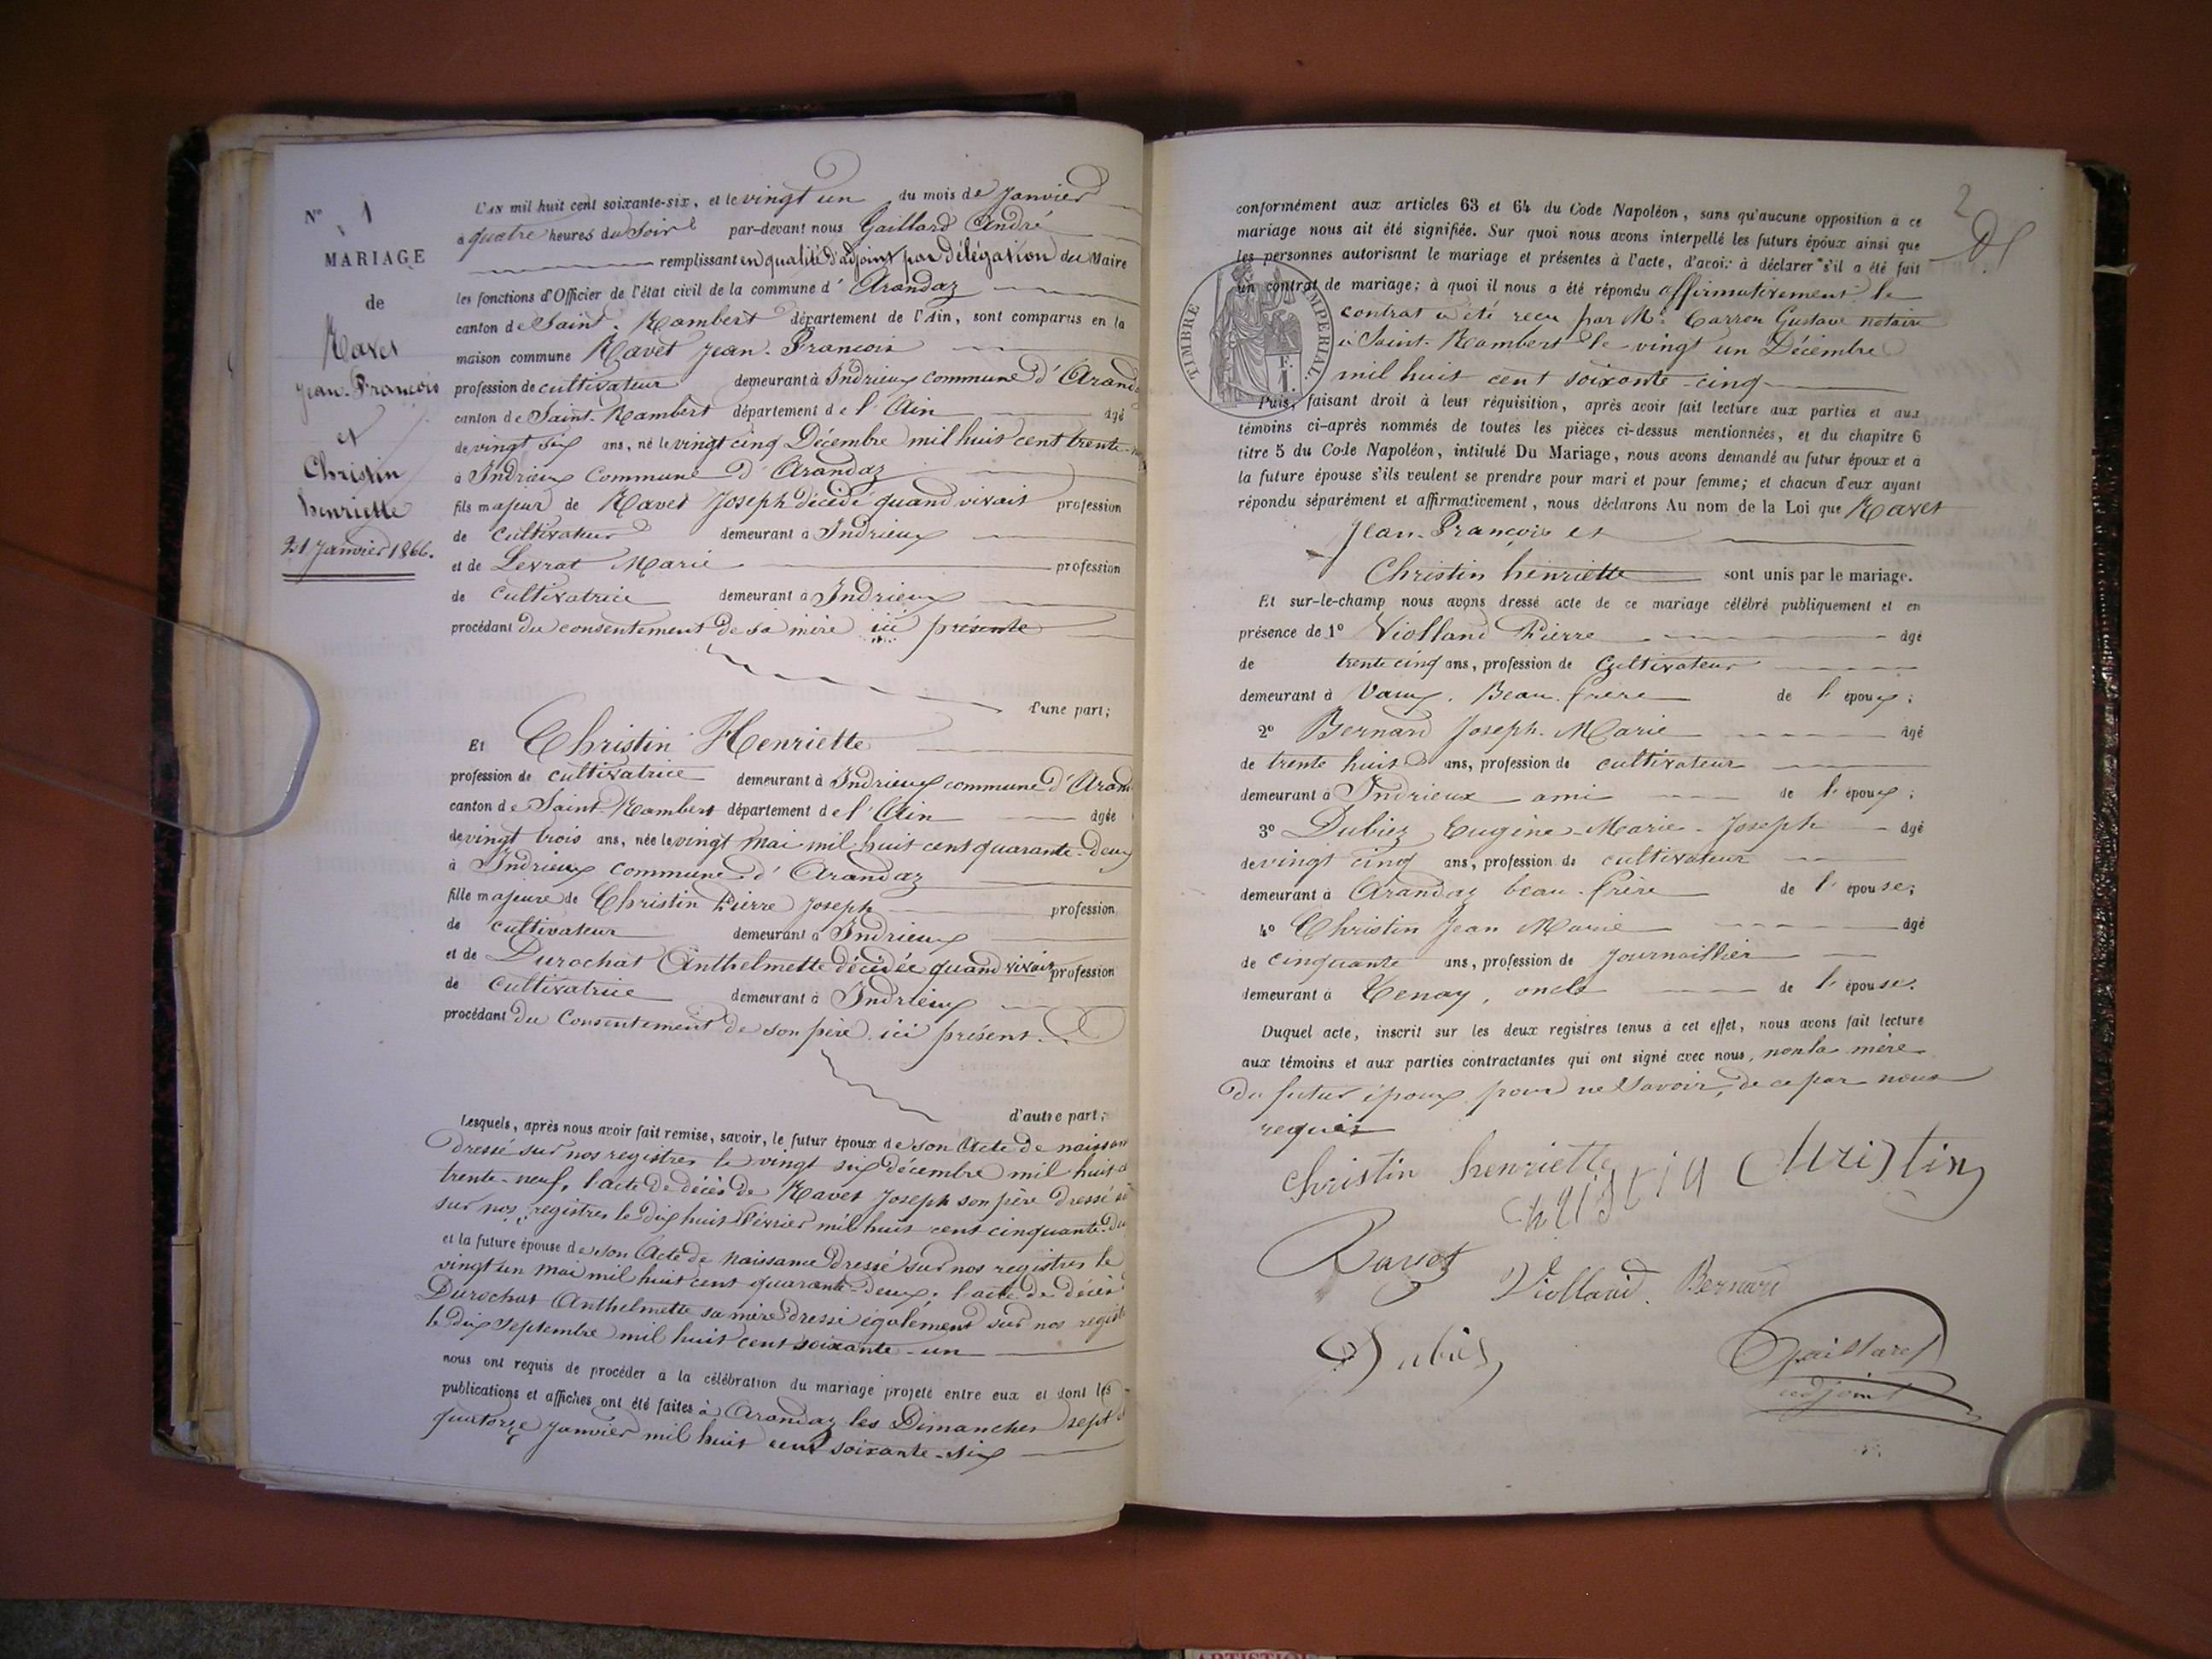 N° 1
MARIAGE
de
Ravet
Jean-François
et
Christin
henriette
21 Janvier 1866.
L'AN mil huit cent soixante-six, et le vingt un du mois de Janvier
à quatre heures du Soir par-devant nous Gaillard André
remplissant en qualité d'adjoint par délégation du Maire
les fonctions d'Officier de l'état civil de la commune d' Arandaz
canton de Saint-Rambert département de l'Ain, sont comparus en la
maison commune Ravet Jean-François
profession de cultivateur demeurant à Indrieux commune d'
canton de Saint-Rambert département de l'Ain âgé
de vingt six ans, né le vingt cinq Décembre mil huit cent trente
à Indrieux Commune d' Arandaz
fils majeur de Ravet Joseph décédé quand vivait profession
de cultivateur demeurant à Indrieux
et de Levrat Marie profession
de cultivatrice demeurant à Indrieux
procédant du consentement de sa mère ici présente
d'une part;
Et Christin Henriette
profession de cultivatrice demeurant à Indrieux commune d'
canton de Saint-Rambert département de l'Ain âgée
de vingt trois ans, née le vingt mai mil huit cent quarante-deux
à Indrieux commune d' Arandaz
fille majeure de Christin Pierre Joseph profession
de cultivateur demeurant à Indrieux
et de Durochat Anthelmette décédée quand vivait profession
de cultivatrice demeurant à Indrieux
procédant du Consentement de son père ici présent.
d'autre part;
Lesquels, après nous avoir fait remise, savoir, le futur époux de son Acte de
dressé sur nos registres le vingt six décembre mil huit
trente-neuf, l'acte de décès de Ravet Joseph son père dressé
sur nos registres le dix huit Février mil huit cent cinquante
et la future épouse de son Acte de naissance dressé sur nos registres le
vingt un mai mil huit cent quarante-deux; l'acte de décès
Durochat Anthelmette sa mère dressé également sur nos
le dix Septembre mil huit cent soixante-un
nous ont requis de procéder à la célébration du mariage projeté entre eux et dont les
publications et affiches ont été faites à Arandaz les Dimanches sept
quatorze Janvier mil huit cent soixante-six
2
conformément aux articles 63 et 64 du Code Napoléon, sans qu'aucune opposition à ce
mariage nous ait été signifiée. Sur quoi nous avons interpellé les futurs époux ainsi que
les personnes autorisant le mariage et présentes à l'acte, d'avoir à déclarer s'il a été fait
un contrat de mariage; à quoi il nous a été répondu affirmativement le
contrat a été reçu par Me Carron Gustave notaire
à Saint-Rambert le vingt un Décembre
mil huit cent soixante-cinq
TIMBRE IMPERIAL.
F. 1.
Puis, faisant droit à leur réquisition, après avoir fait lecture aux parties et aux
témoins ci-après nommés de toutes les pièces ci-dessus mentionnées, et du chapitre 6
titre 5 du Code Napoléon, intitulé Du Mariage, nous avons demandé au futur époux et à
la future épouse s'ils veulent se prendre pour mari et pour femme; et chacun d'eux ayant
répondu séparément et affirmativement, nous déclarons Au nom de la Loi que Ravet
Jean-François et
Christin henriette sont unis par le mariage.
Et sur-le-champ nous avons dressé acte de ce mariage célébré publiquement et en
présence de 1° Violland Pierre âgé
de trente cinq ans, profession de cultivateur
demeurant à Vaux, Beau-frère de l'époux;
2° Bernard Joseph-Marie âgé
de trente huit ans, profession de cultivateur
demeurant à Indrieux ami de l'époux;
3° Dubiez Eugène-Marie-Joseph âgé
de vingt cinq ans, profession de cultivateur
demeurant à Arandaz beau-frère de l'épouse;
4° Christin Jean Marie âgé
de cinquante ans, profession de Journaillier
demeurant à Tenay, oncle de l'épouse.
Duquel acte, inscrit sur les deux registres tenus à cet effet, nous avons fait lecture
aux témoins et aux parties contractantes qui ont signé avec nous, non la mère
du futur époux pour ne Savoir, de ce par nous
requis
Christin henriette Christin
Ravet Violland Bernard
Dubiez Gaillard
adjoint